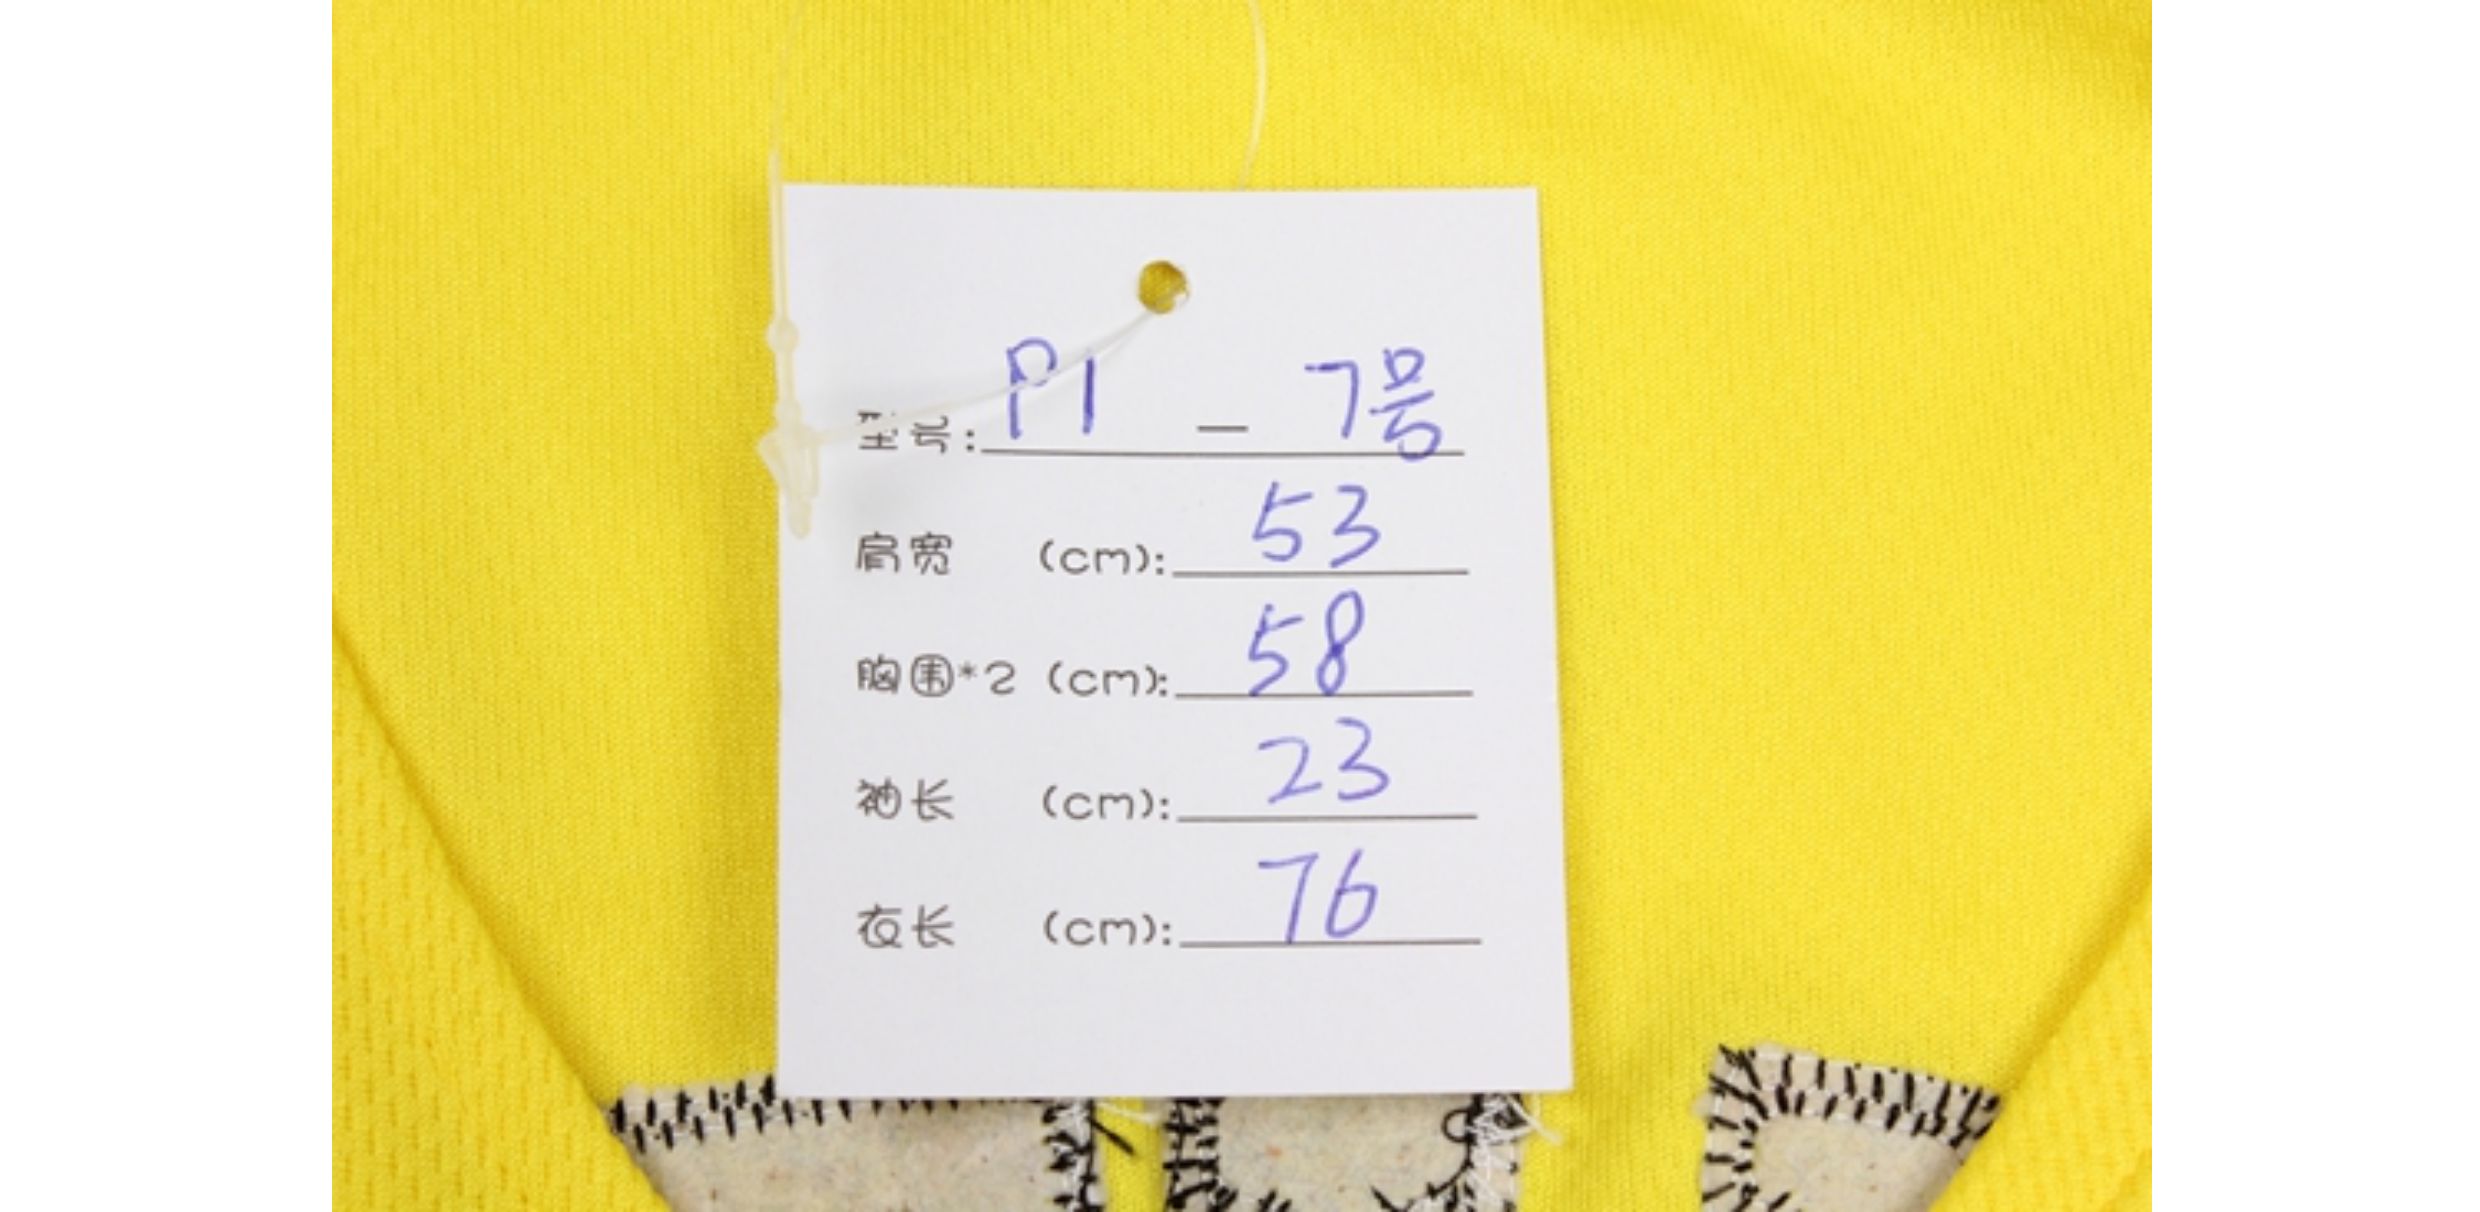 型号: P1 — 7号
肩宽 (cm): 53
胸围*2 (cm): 58
袖长 (cm): 23
衣长 (cm): 76